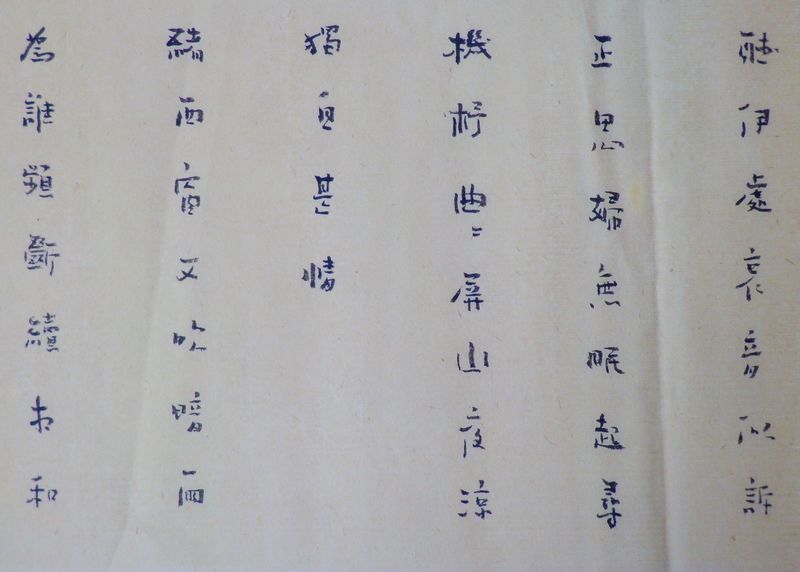 聽伊處哀音似訴
正思婦無眠起尋
機杼曲〻屏山夜涼
獨自甚情
緒西窗又吹暗雨
為誰頻斷續相和